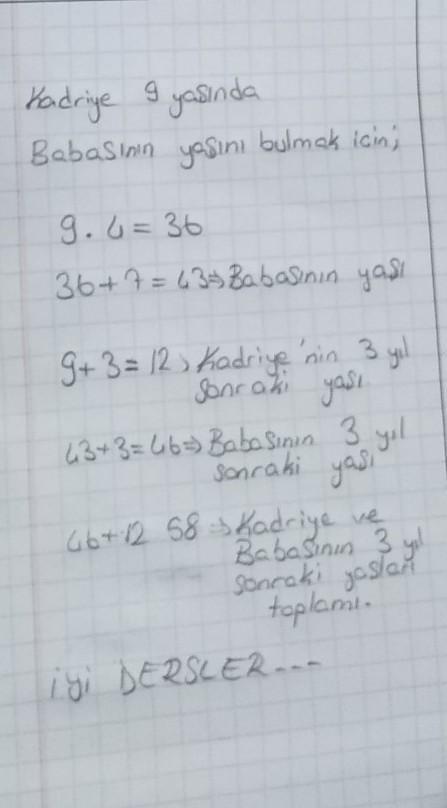 Kadriye 9 yasında
Babasının yasını bulmak icin;
9.4=36
36+7=43⇒Babasının yası
9+3=12⇒Kadriye'nin 3 yıl
sonraki yası
43+3=46⇒Babasının 3 yıl
sonraki yası
46+12 58⇒Kadriye ve
Babasının 3 yıl
sonraki yasları
toplamı.
iyi DERSLER---